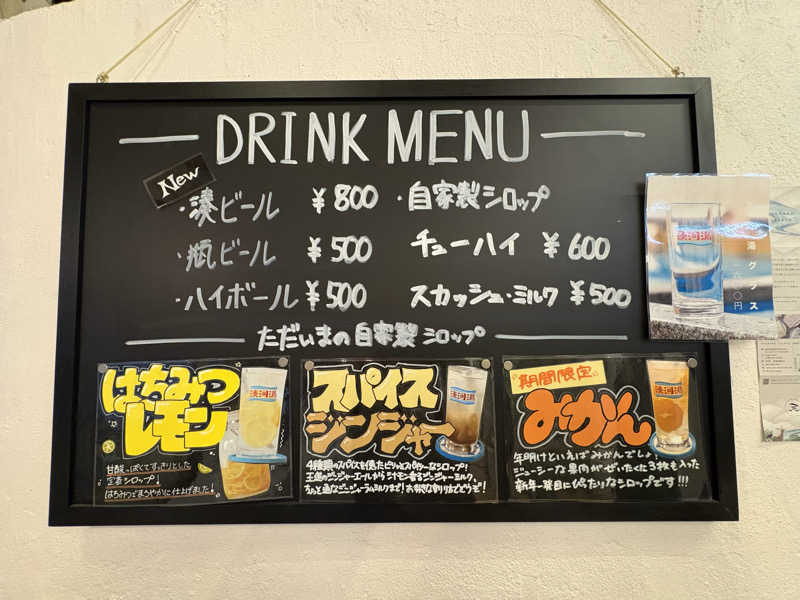 DRINK MENU
New
・湊ビール ¥800
・瓶ビール ¥500
・ハイボール ¥500
・自家製シロップ
チューハイ ¥600
スカッシュ・ミルク ¥500
ただいまの自家製シロップ
はちみつ
レモン
甘酸っぱくてすっきりとした
定番シロップ!
はちみつでまろやかに仕上げました!
スパイス
ジンジャー
4種類のスパイスを使たピリッとスパイシーなシロップ!
王道のジンジャーエールから
ジンジャーミルク、
お好きな割り方でどうぞ!
期間限定
みかん
年明けといえばみかんでしょ!
ジューシーな果肉がぜいたくに3枚も入った
新年一発目にぴったりなシロップです!!!
湯グラス